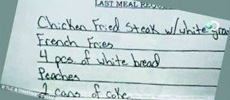 LAST MEAL
Chicken Fried Steak w/ white
French Fries
4 pcs of white bread
Peaches
2 cans of coke